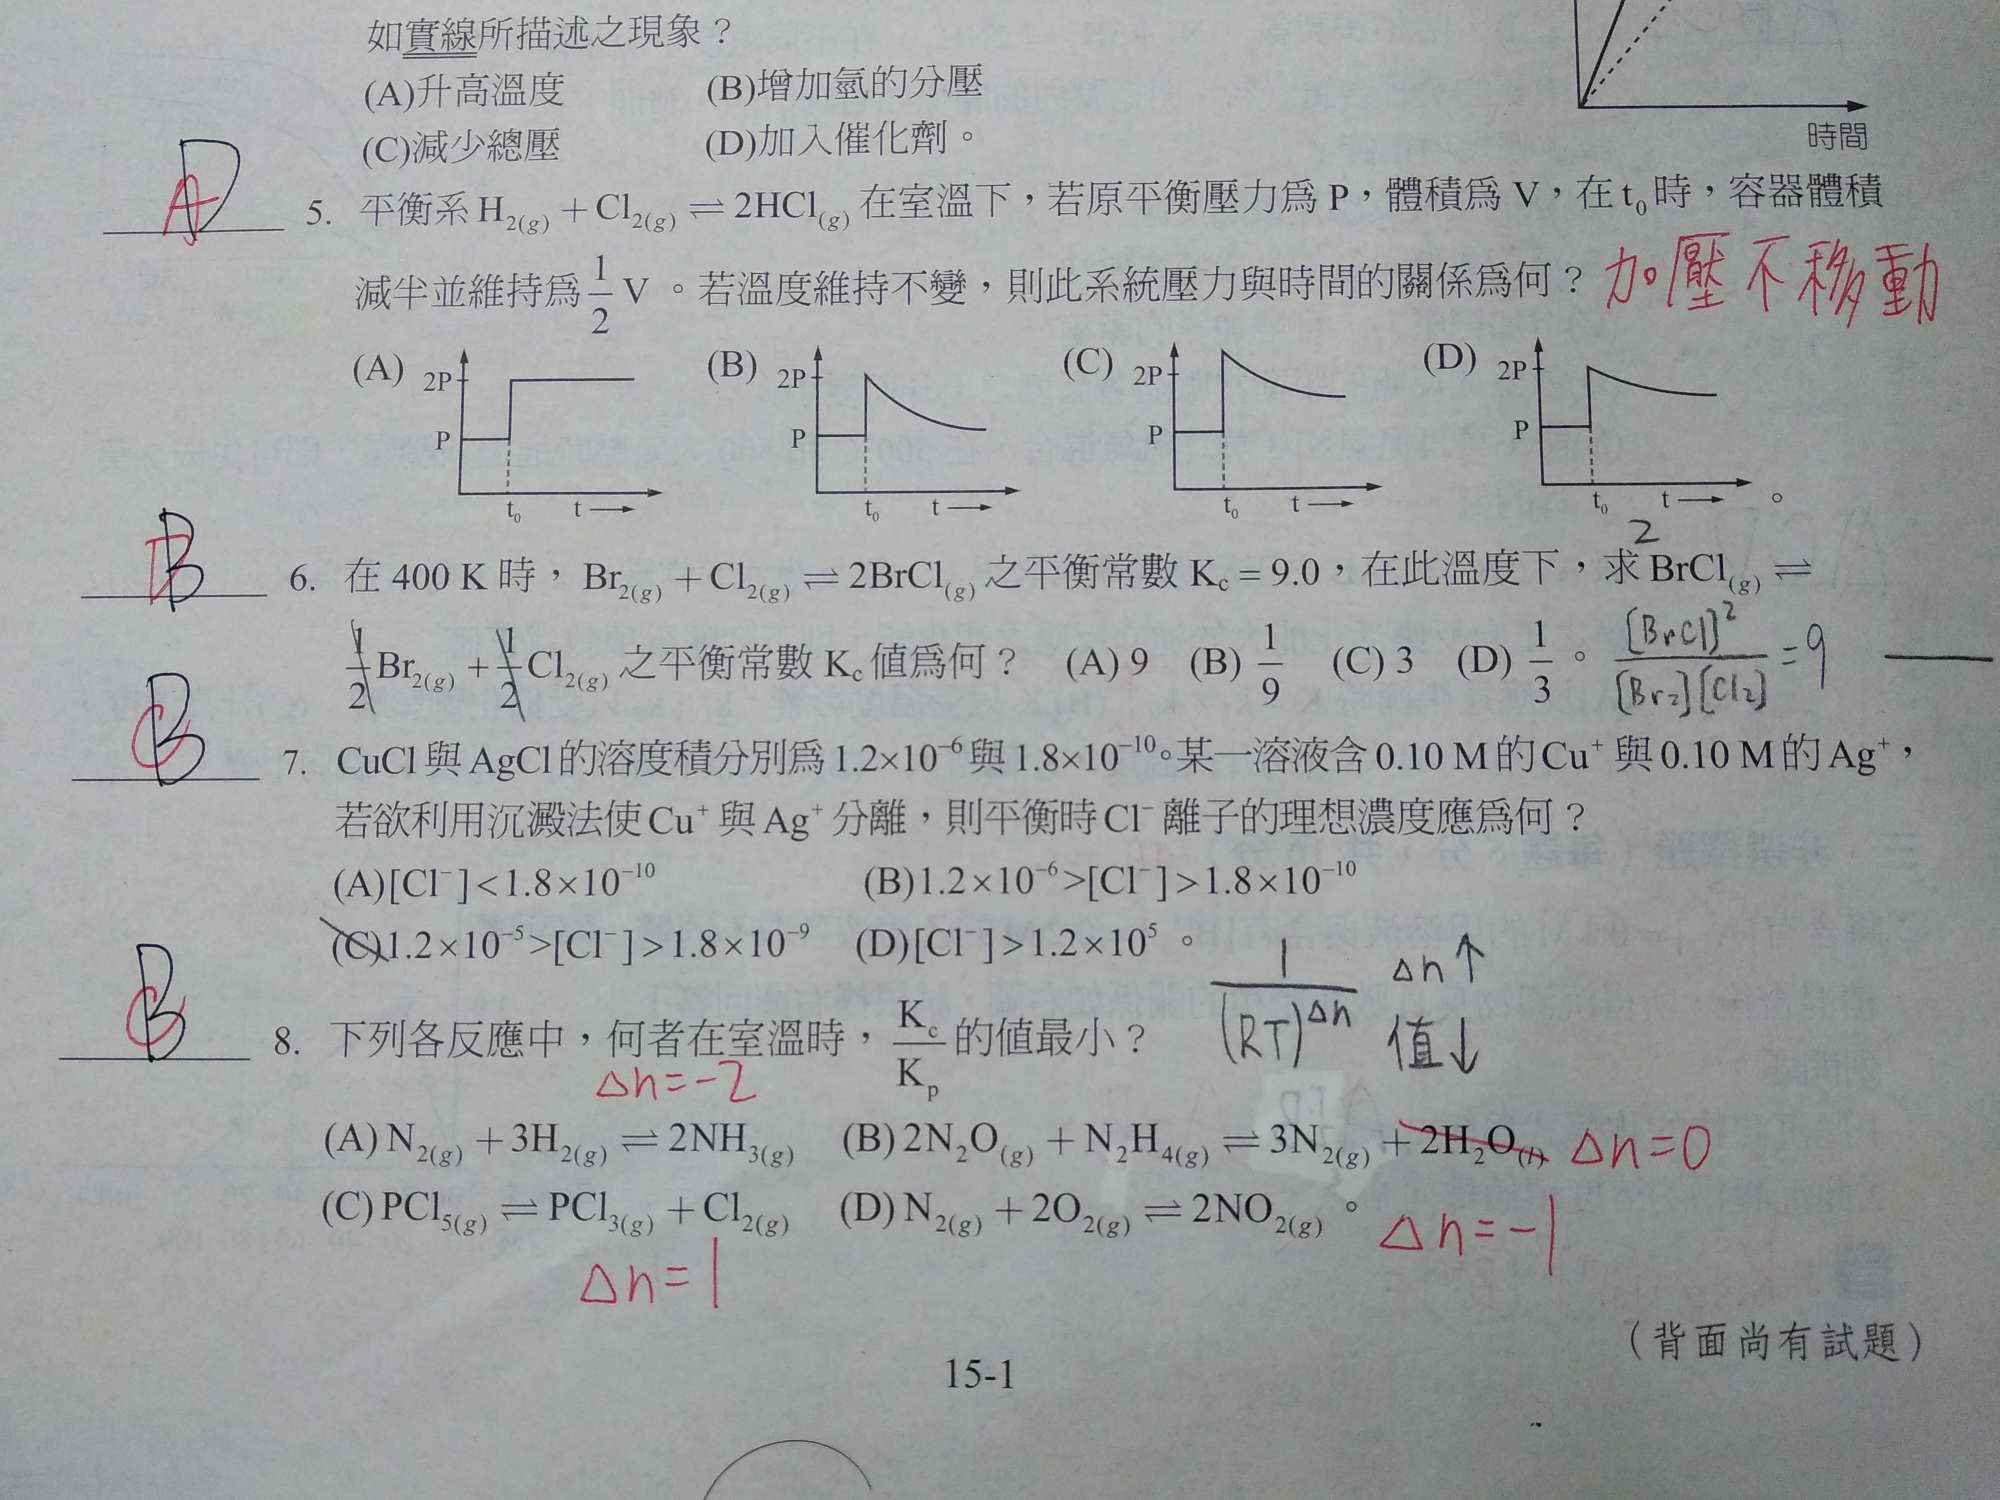 如實線所描述之現象？
(A)升高溫度 (B)增加氫的分壓
(C)減少總壓 (D)加入催化劑。
時間
D A 5. 平衡系 H₂(g) + Cl₂(g) ⇌ 2HCl(g) 在室溫下，若原平衡壓力為 P，體積為 V，在 t₀ 時，容器體積
減半並維持為 1/2 V 。若溫度維持不變，則此系統壓力與時間的關係為何？ 加壓不移動
(A) 2P P t₀ t (B) 2P P t₀ t (C) 2P P t₀ t (D) 2P P t₀ t 。
2
B D 6. 在 400 K 時， Br₂(g) + Cl₂(g) ⇌ 2BrCl(g) 之平衡常數 Kc = 9.0，在此溫度下，求 BrCl(g) ⇌
1/2 Br₂(g) + 1/2 Cl₂(g) 之平衡常數 Kc 值為何？ (A) 9 (B) 1/9 (C) 3 (D) 1/3 。 [BrCl]²/[Br₂][Cl₂] = 9
B C 7. CuCl 與 AgCl 的溶度積分別為 1.2×10⁻⁶ 與 1.8×10⁻¹⁰。某一溶液含 0.10 M 的 Cu⁺ 與 0.10 M 的 Ag⁺，
若欲利用沉澱法使 Cu⁺ 與 Ag⁺ 分離，則平衡時 Cl⁻ 離子的理想濃度應為何？
(A)[Cl⁻]<1.8×10⁻¹⁰ (B)1.2×10⁻⁶>[Cl⁻]>1.8×10⁻¹⁰
(C)1.2×10⁻⁵>[Cl⁻]>1.8×10⁻⁹ (D)[Cl⁻]>1.2×10⁵ 。
1/(RT)^Δn Δn↑
值↓
B C 8. 下列各反應中，何者在室溫時， Kc/Kp 的值最小？
Δn=-2
(A) N₂(g) + 3H₂(g) ⇌ 2NH₃(g) (B) 2N₂O(g) + N₂H₄(g) ⇌ 3N₂(g) + 2H₂O(l) Δn=0
(C) PCl₅(g) ⇌ PCl₃(g) + Cl₂(g) (D) N₂(g) + 2O₂(g) ⇌ 2NO₂(g) 。 Δn=-1
Δn=1
（背面尚有試題）
15-1